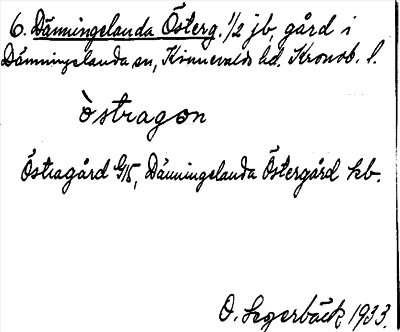 6. Dänningelanda Österg. 1/2 jb, gård i
Dänningelanda sn, Kinnevalds hd. Kronob. l.
òstragon
Östragård 4/15, Dänningelanda Östergård kb.
O. Segerbäck 1933.